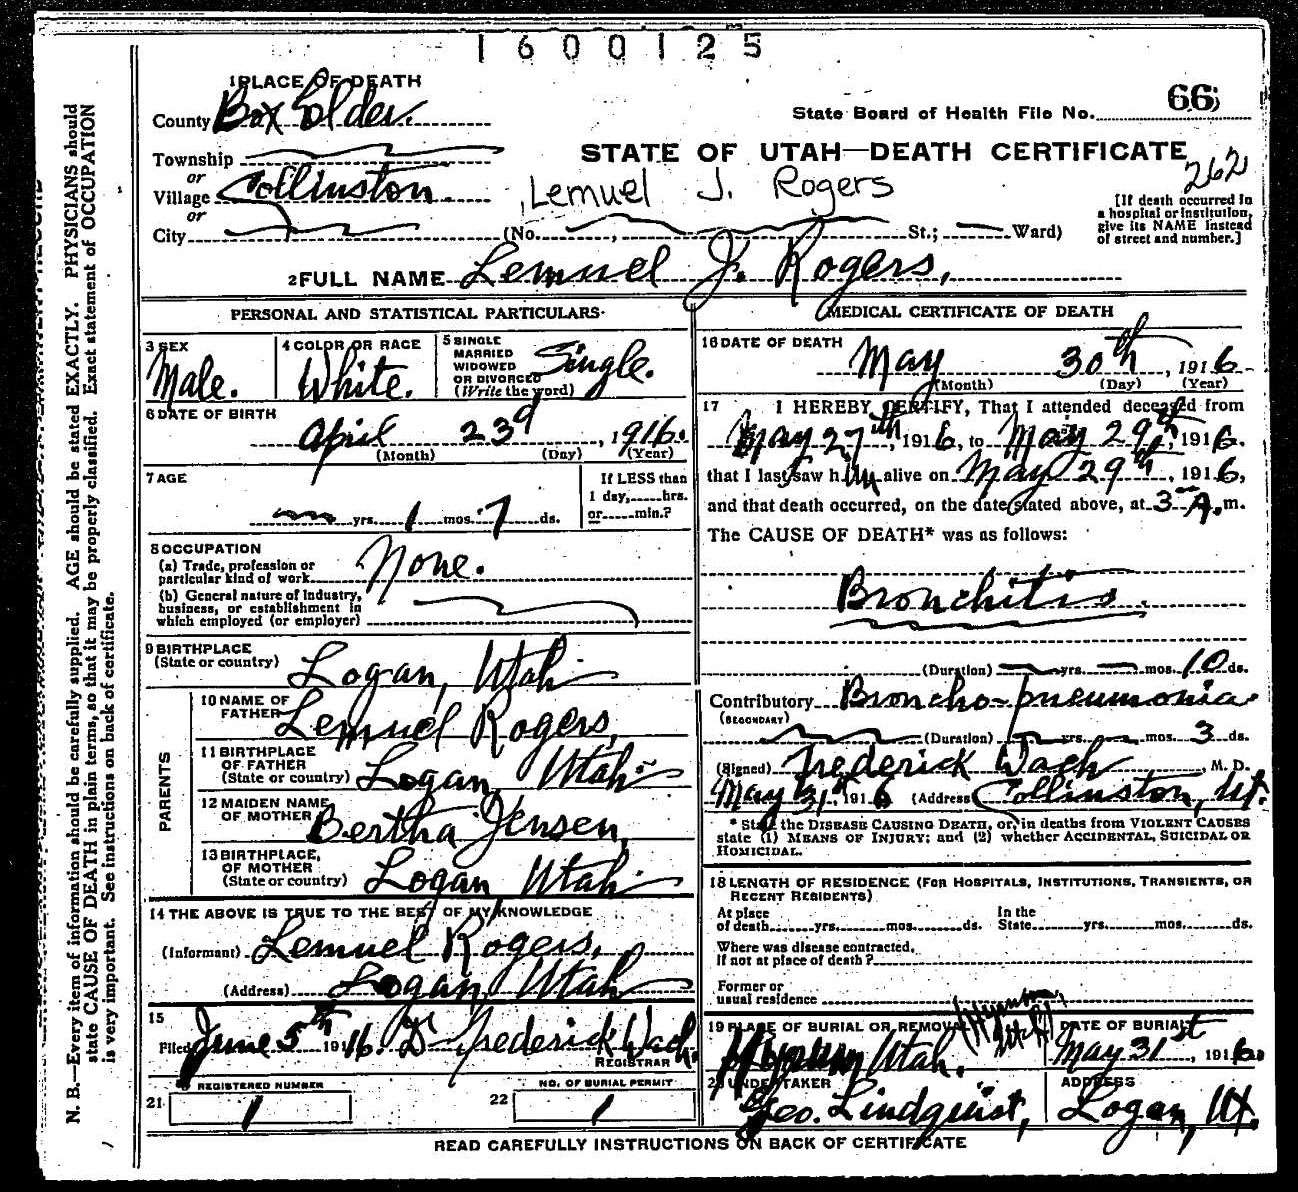 1600125
1 PLACE OF DEATH
66
County Box Elder.
State Board of Health File No.
Township
STATE OF UTAH—DEATH CERTIFICATE
262
or
Village Collinston.
Lemuel J. Rogers
[If death occurred in
a hospital or institution,
give its NAME instead
of street and number.]
or
City (No. , St.; Ward)
2 FULL NAME Lemuel J. Rogers,
PERSONAL AND STATISTICAL PARTICULARS
3 SEX
Male.
4 COLOR OR RACE
White.
5 SINGLE
MARRIED
WIDOWED
OR DIVORCED
(Write the word)
Single.
6 DATE OF BIRTH
April 23d, 1916.
(Month) (Day) (Year)
7 AGE
yrs. 1 mos. 7 ds.
If LESS than
1 day, hrs.
or min.?
8 OCCUPATION
(a) Trade, profession or
particular kind of work None.
(b) General nature of Industry,
business, or establishment in
which employed (or employer)
9 BIRTHPLACE
(State or country) Logan, Utah
PARENTS
10 NAME OF
FATHER Lemuel Rogers,
11 BIRTHPLACE
OF FATHER
(State or country) Logan, Utah
12 MAIDEN NAME
OF MOTHER Bertha Jensen,
13 BIRTHPLACE,
OF MOTHER
(State or country) Logan Utah.
14 THE ABOVE IS TRUE TO THE BEST OF MY KNOWLEDGE
(Informant) Lemuel Rogers,
(Address) Logan, Utah
15
Filed June 5th 1916. Dr Frederick Wach.
REGISTRAR
REGISTERED NUMBER
21 1
NO. OF BURIAL PERMIT
22 1
MEDICAL CERTIFICATE OF DEATH
16 DATE OF DEATH
May 30th, 1916
(Month) (Day) (Year)
17 I HEREBY CERTIFY, That I attended deceased from
May 27th, 1916, to May 29th, 1916.
that I last saw him alive on May 29th, 1916,
and that death occurred, on the date stated above, at 3 A. m.
The CAUSE OF DEATH* was as follows:
Bronchitis.
(Duration) yrs. mos. 10 ds.
Contributory Broncho-pneumonia
(SECONDARY)
(Duration) yrs. mos. 3 ds.
(Signed) Frederick Wach, M. D.
May 31st, 1916 (Address) Collinston, Ut.
* State the DISEASE CAUSING DEATH, or, in deaths from VIOLENT CAUSES
state (1) MEANS OF INJURY; and (2) whether ACCIDENTAL, SUICIDAL OR
HOMICIDAL.
18 LENGTH OF RESIDENCE (FOR HOSPITALS, INSTITUTIONS, TRANSIENTS, OR
RECENT RESIDENTS)
At place
of death yrs. mos. ds.
In the
State yrs. mos. ds.
Where was disease contracted,
if not at place of death?
Former or
usual residence
19 PLACE OF BURIAL OR REMOVAL
Utah.
DATE OF BURIAL
May 31st, 1916.
20 UNDERTAKER
Geo. Lindquist,
ADDRESS
Logan, Ut.
READ CAREFULLY INSTRUCTIONS ON BACK OF CERTIFICATE
N. B.—Every item of information should be carefully supplied. AGE should be stated EXACTLY. PHYSICIANS should
state CAUSE OF DEATH in plain terms, so that it may be properly classified. Exact statement of OCCUPATION
is very important. See instructions on back of certificate.